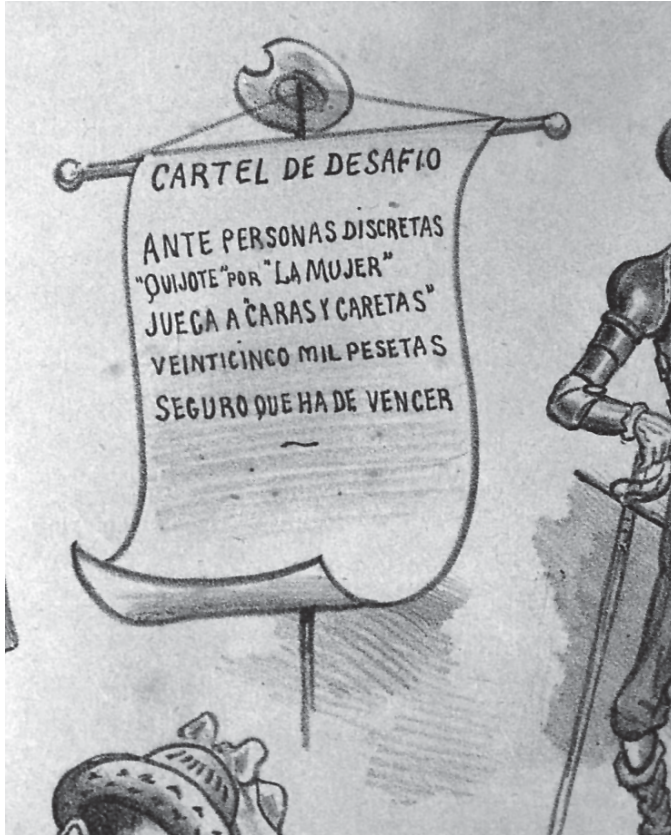 CARTEL DE DESAFIO
ANTE PERSONAS DISCRETAS
"QUIJOTE" POR "LA MUJER"
JUEGA A "CARAS Y CARETAS"
VEINTICINCO MIL PESETAS
SEGURO QUE HA DE VENCER